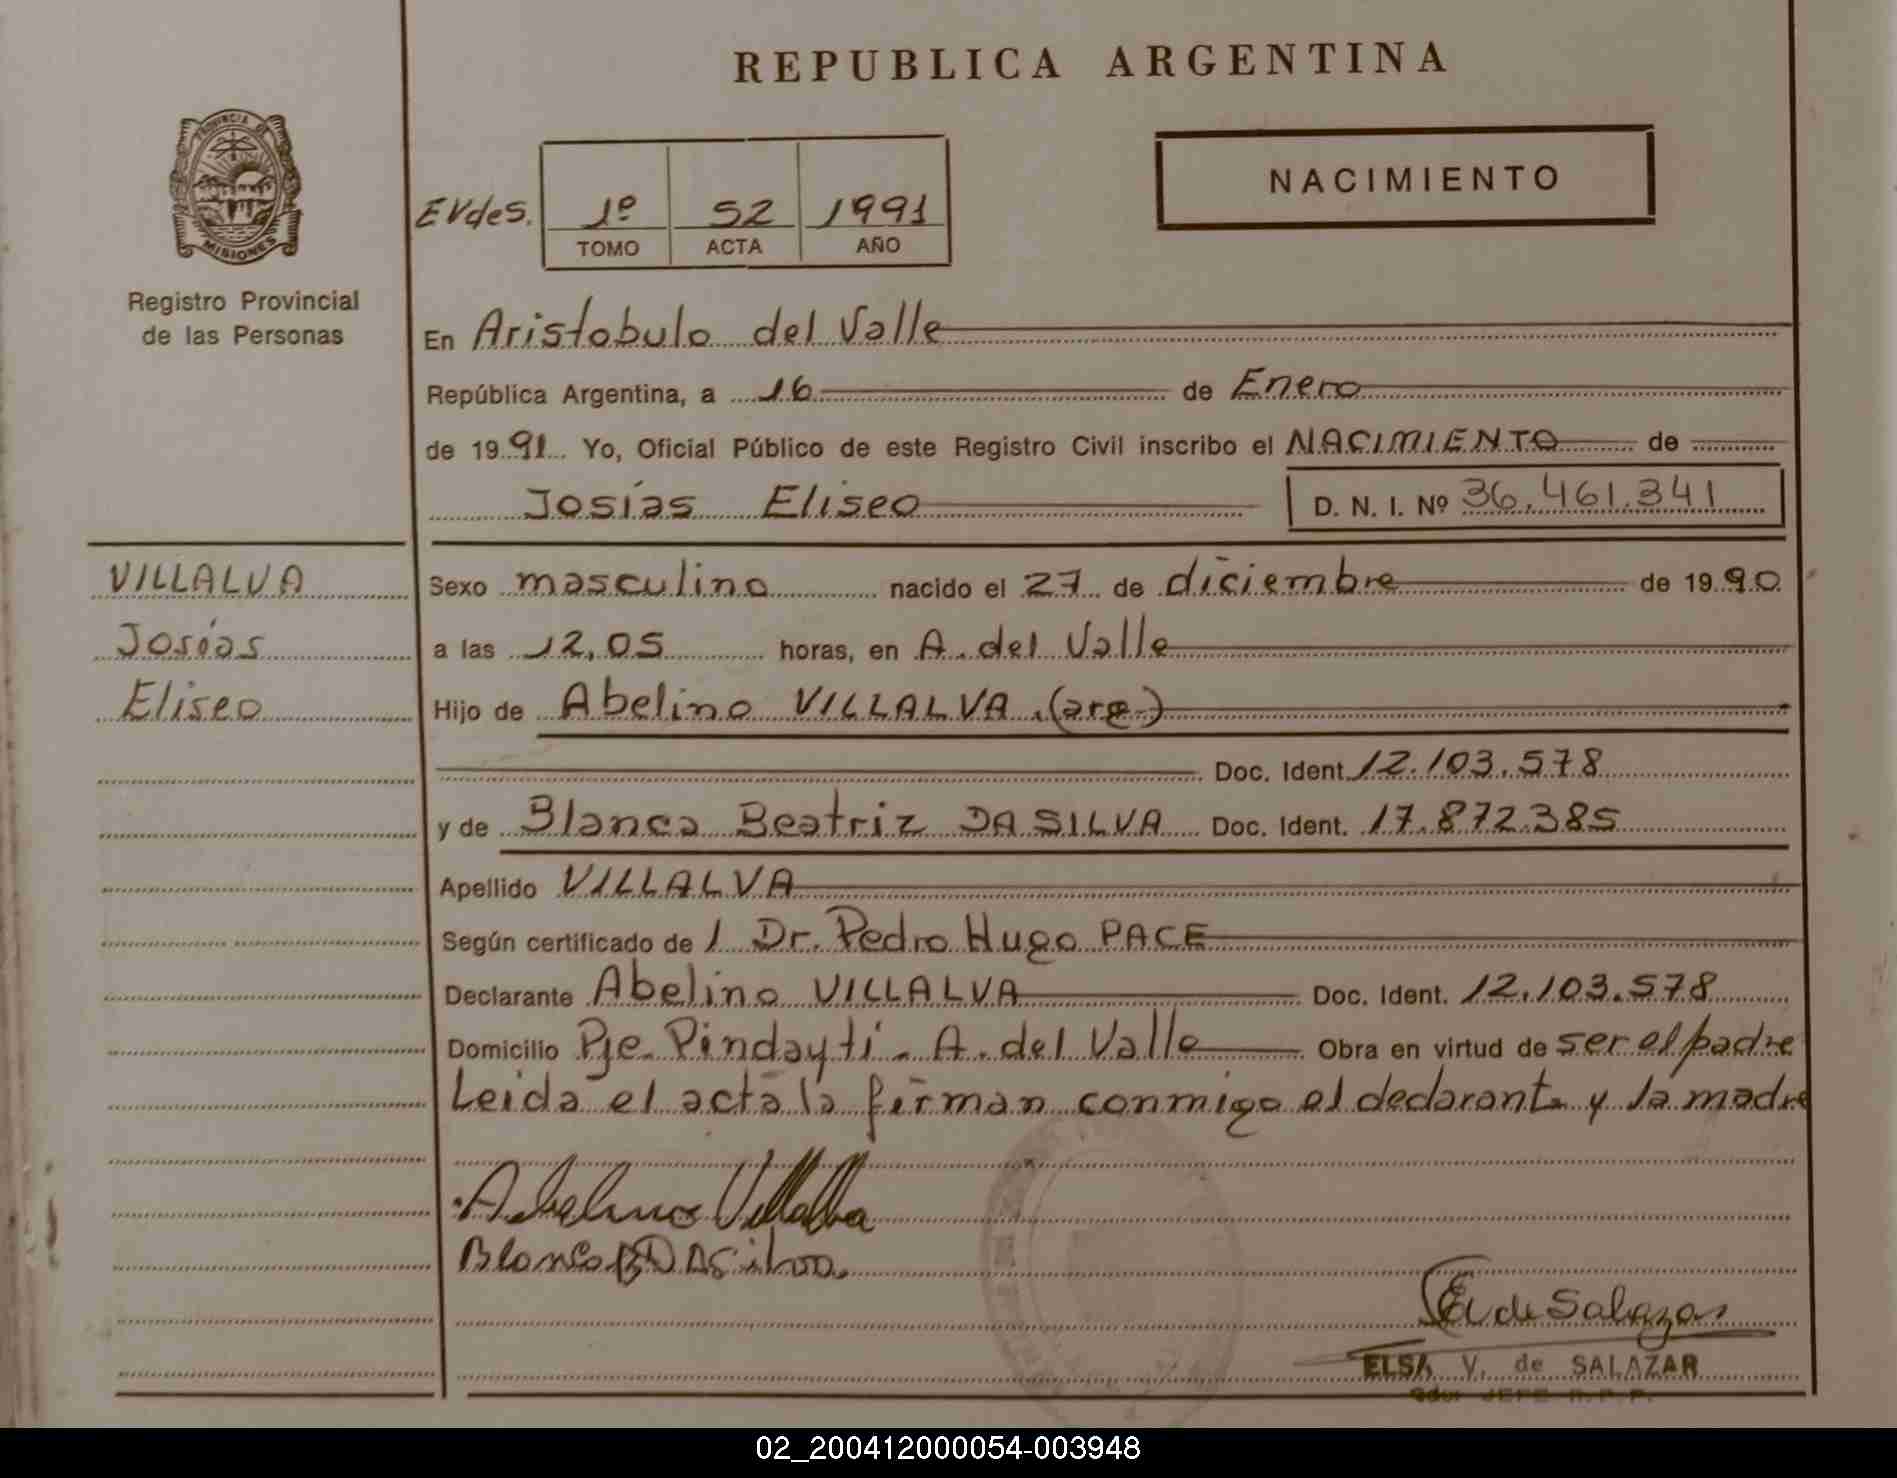 REPUBLICA ARGENTINA
PROVINCIA DE
MISIONES
Registro Provincial
de las Personas
NACIMIENTO
EVdeS. 1º 52 1991
TOMO ACTA AÑO
En Aristobulo del Valle
República Argentina, a 16 de Enero
de 1991 Yo, Oficial Público de este Registro Civil inscribo el NACIMIENTO de
Josías Eliseo D. N. I. Nº 36.461.341
VILLALVA
Josías
Eliseo
Sexo masculino nacido el 27 de diciembre de 1990
a las 12,05 horas, en A. del Valle
Hijo de Abelino VILLALVA.(arg)
Doc. Ident. 12.103.578
y de Blanca Beatriz DA SILVA Doc. Ident. 17.872.385
Apellido VILLALVA
Según certificado de / Dr. Pedro Hugo PACE
Declarante Abelino VILLALVA Doc. Ident. 12.103.578
Domicilio Pje. Pindaytí - A. del Valle Obra en virtud de ser el padre
Leida el acta la firman conmigo el declarante y la madre
Abelino Villalba
Blanca B DA Silva
EV de Salazar
ELSA V. de SALAZAR
JEFE R.P.P.
02_200412000054-003948